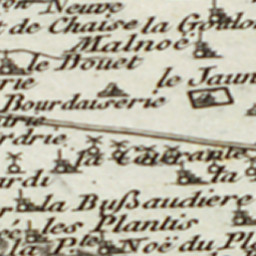 Neuve
de Chaise la Goulo
Malnoë
le Douet
rie
le Jaun
Bourdaiserie
trie
rdrie
la
la
ardi
la Bußaudiere
les Plantis
la Pte Noë du Pl